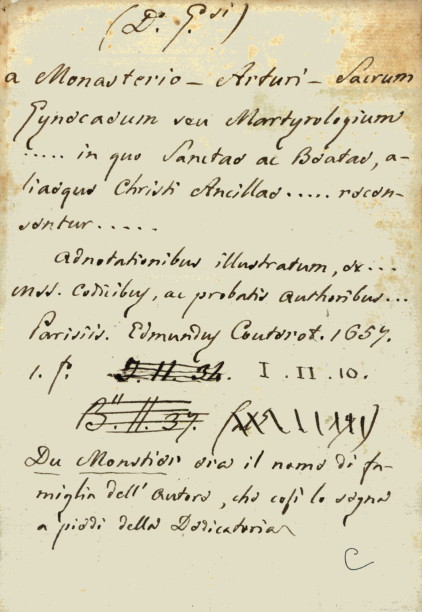 (D. G.si)
a Monasterio - Arturi - Sacrum
Gynecaeum seu Martyrologium
..... in quo Sanctae ac Beatae, a-
liaeque Christi Ancillae ..... recen-
sentur ......
Adnotationibus illustratum, ex ...
Mss. Codicibus, ac probatis authoribus ...
Parisiis. Edmundus Couterot. 1657.
1. f. J. II. 32. I . II . 10.
B. II. 37.
Du Monstier era il nome di fa-
miglia dell' Autore, che così lo segna
a piedi della Dedicatoria
C